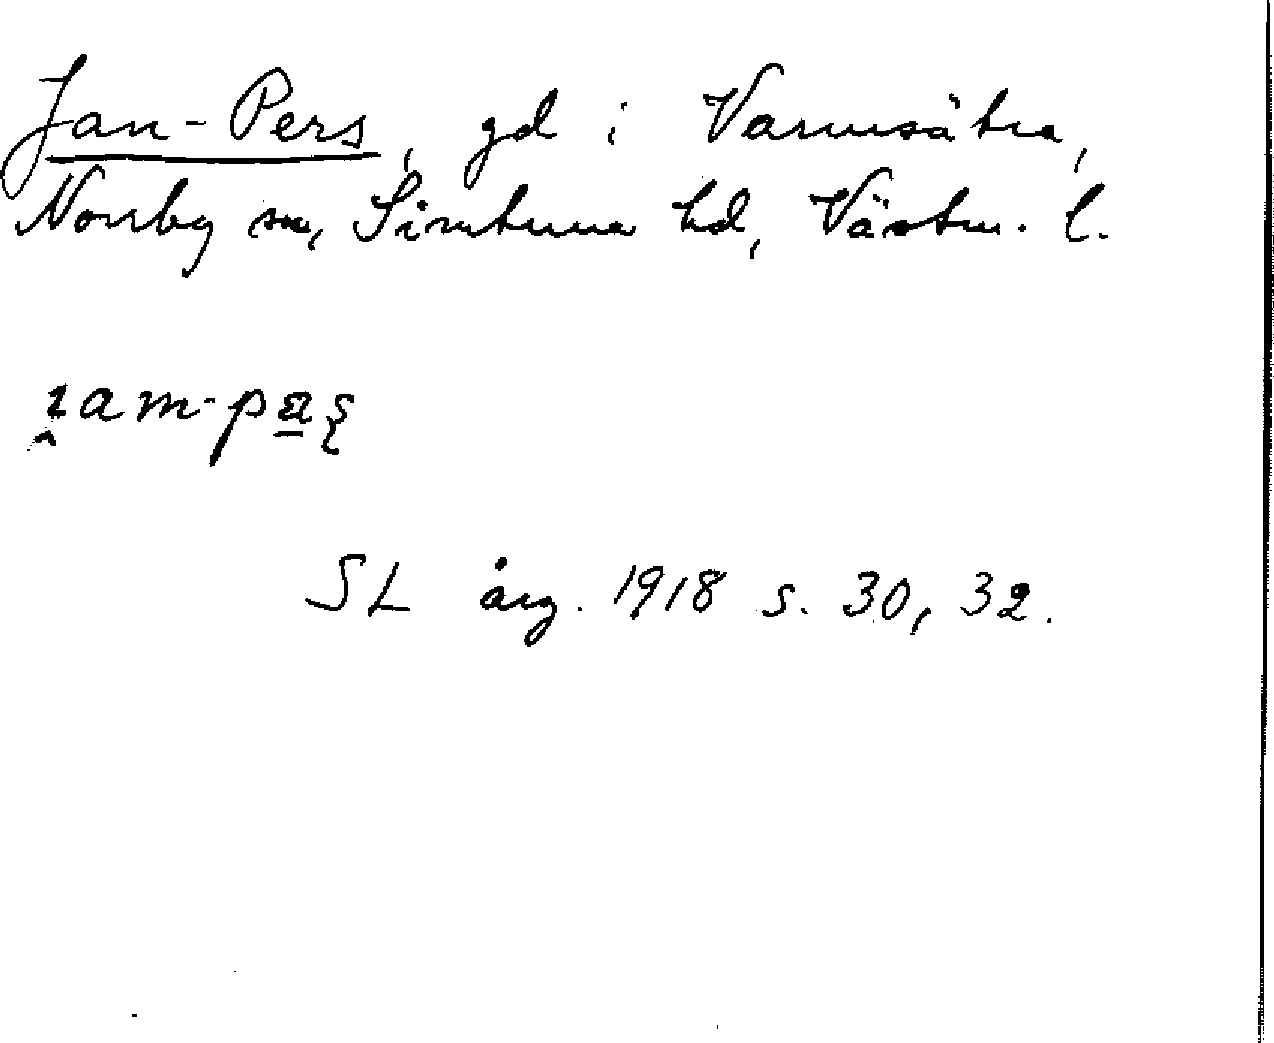 Jan-Pers, gd i Varmsätra,
Norrby sn, Simtuna hd, Västm. l.
ɪ̭am-pa̲ʂ
SL årg. 1918 s. 30, 32.